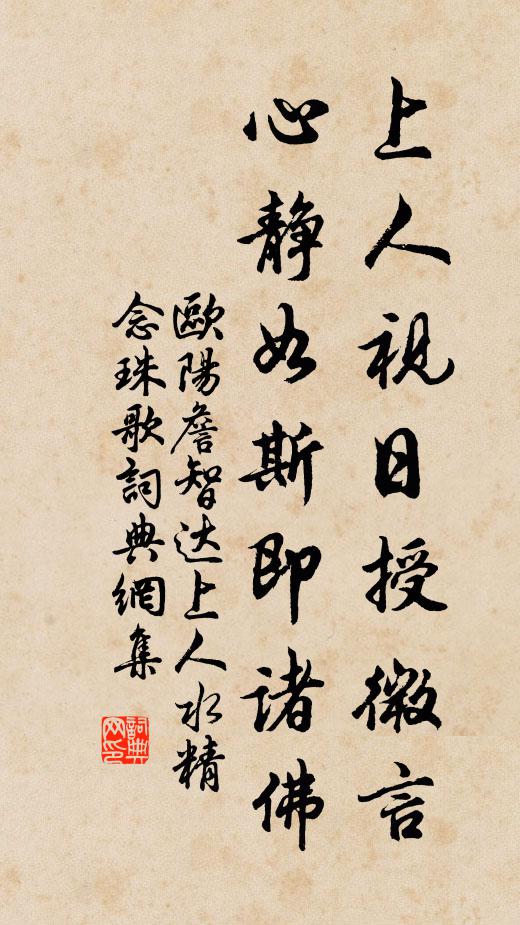 上人視日授微言
心靜如斯即諸佛
歐陽詹智达上人水精
念珠歌詞典網集
詞典網印